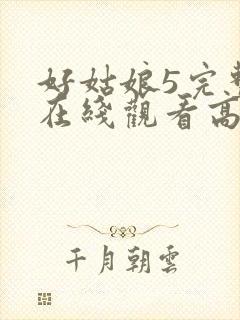 好姑娘5完整
在綫觀看高
千月朝雲